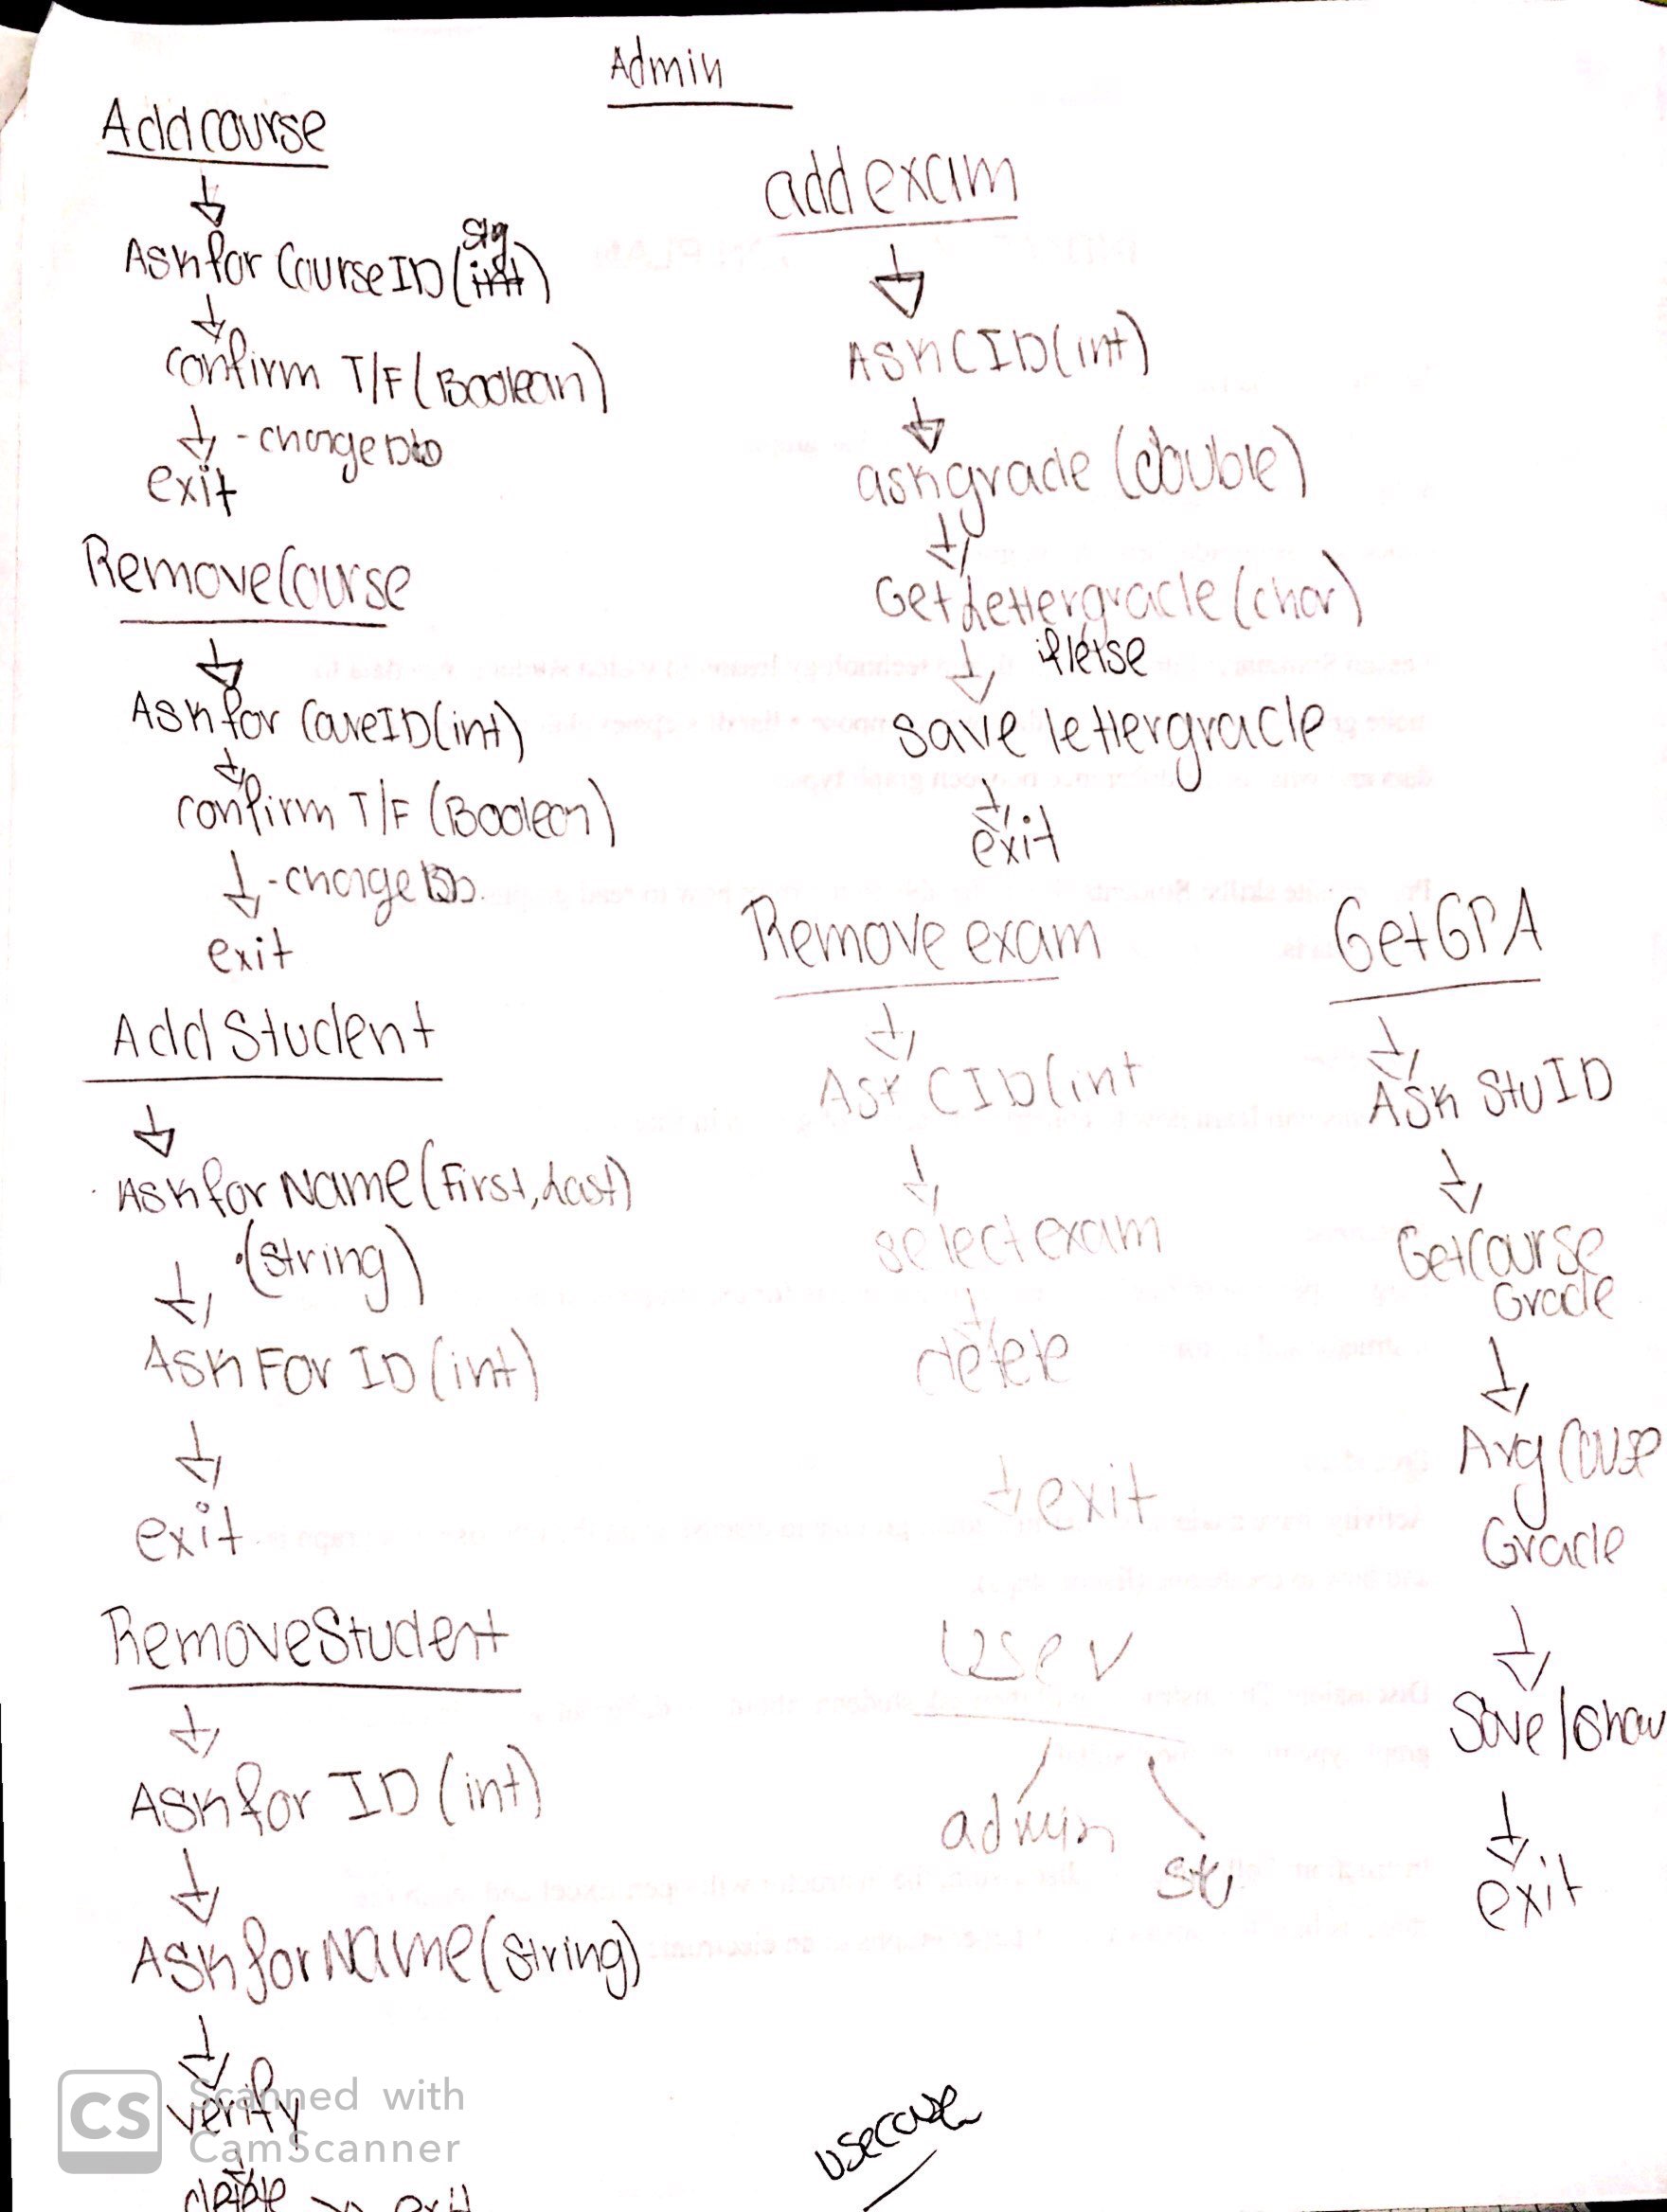 Admin
Addcourse
Ask for CourseID (int)
confirm T/F (Boolean)
- change Db
exit
RemoveCourse
Ask for CourseID (int)
confirm T/F (Boolean)
- change Db
exit
Add Student
Ask for Name (First, Last)
(string)
Ask For ID (int)
exit
RemoveStudent
Ask for ID (int)
Ask for Name (String)
verify
delete → exit
add exam
Ask CID (int)
ask grade (double)
Get Lettergrade (char)
if/else
save lettergrade
exit
Remove exam
Ask CID (int
select exam
delete
exit
User
admin
St
GetGPA
Ask StuID
GetCourse
Grade
Avg Course
Grade
Save/show
exit
usecase
CS
Scanned with
CamScanner